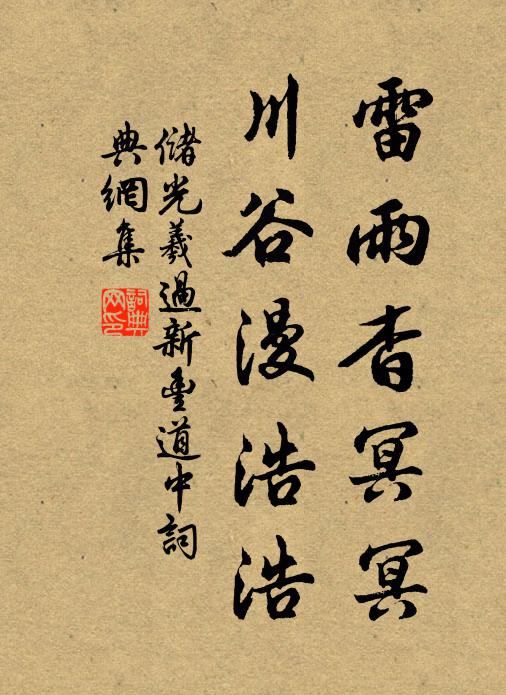 雷雨杳冥冥
川谷漫浩浩
儲光羲過新豐道中詞
典網集
詞典網印